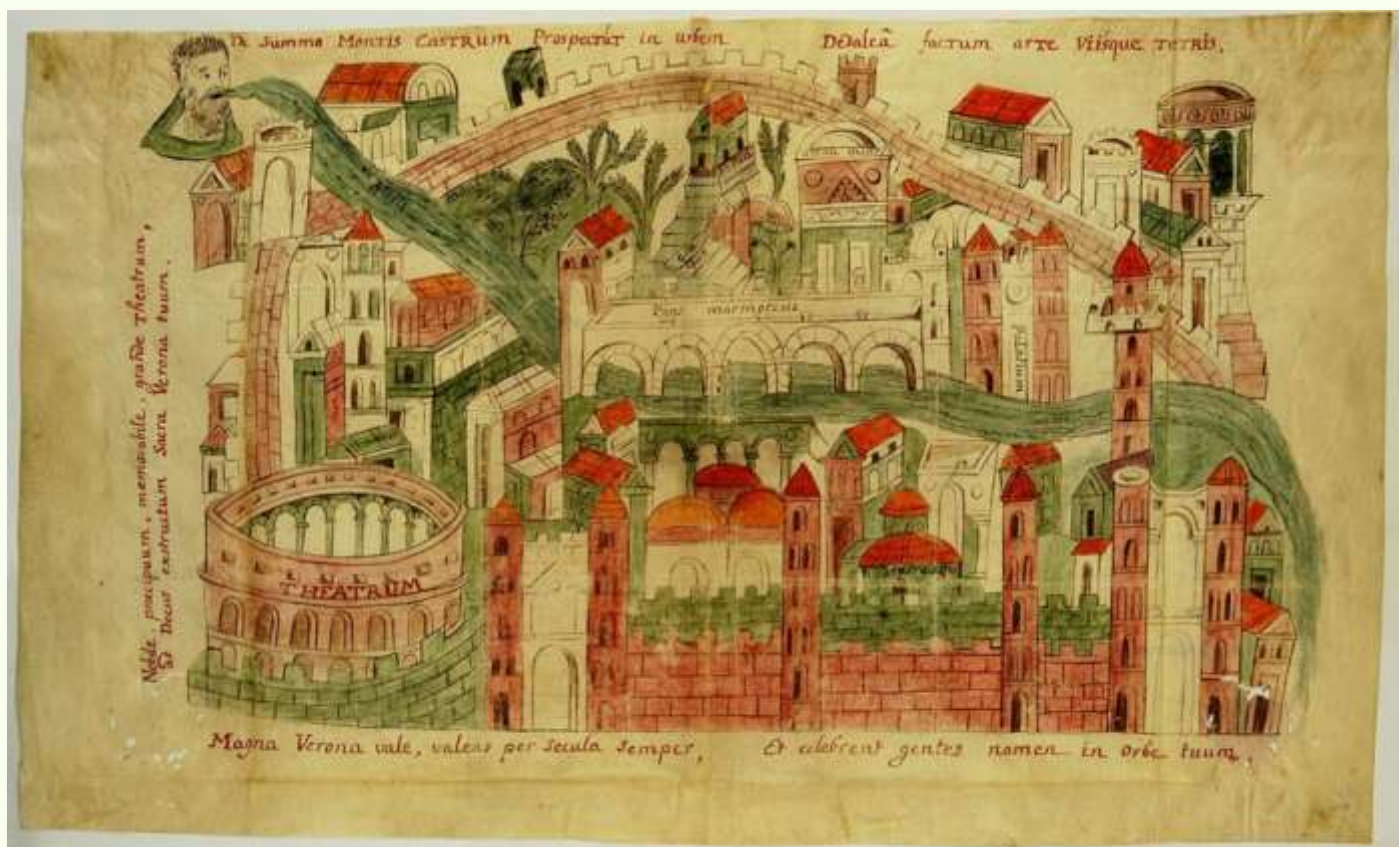 De Summo Montis Castrum Prospectat in urbem Dedaleâ factum arte Viisque tetris.
Nobile, precipuum, memorabile, grande Theatrum,
Ad Decus exstructum Sacra Verona tuum.
Pons marmoreus
THEATRUM
Magna Verona vale, valeas per secula semper, Et celebrent gentes nomen in Orbe tuum.